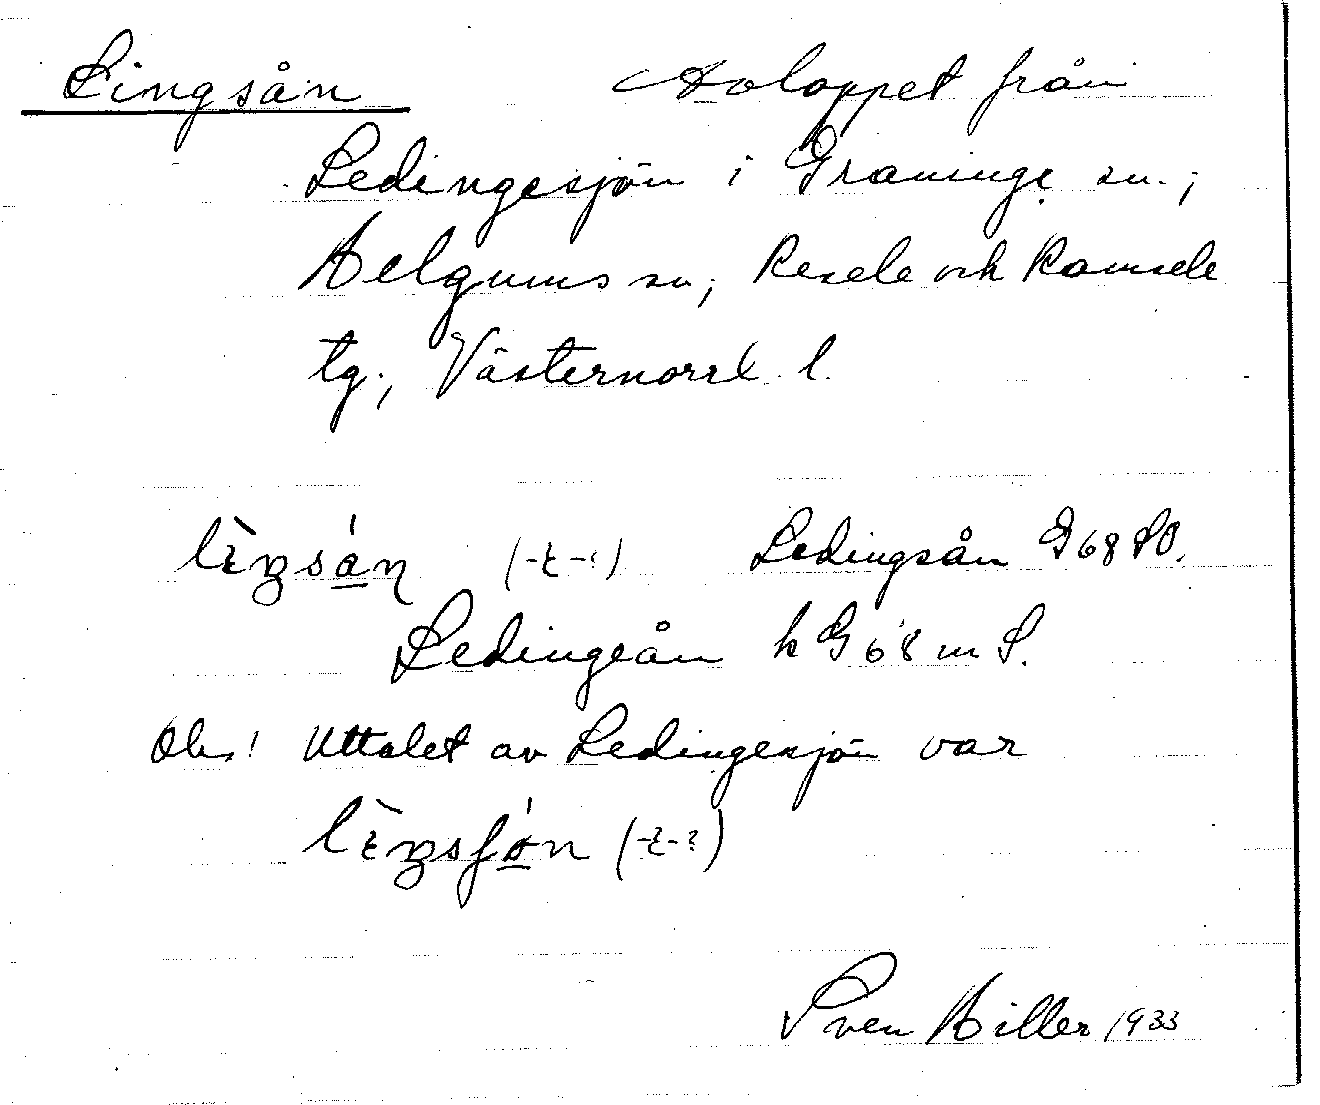 Lingsån Avloppet från
Ledingesjön i Graninge sn.;
Helgums sn; Resele och Ramsele
tg; Västernorrl. l.
Ledingsån G68 SO.
Ledingeån h G68 m S.
Obs! Uttalet av Ledingesjön var
Sven Hiller 1933